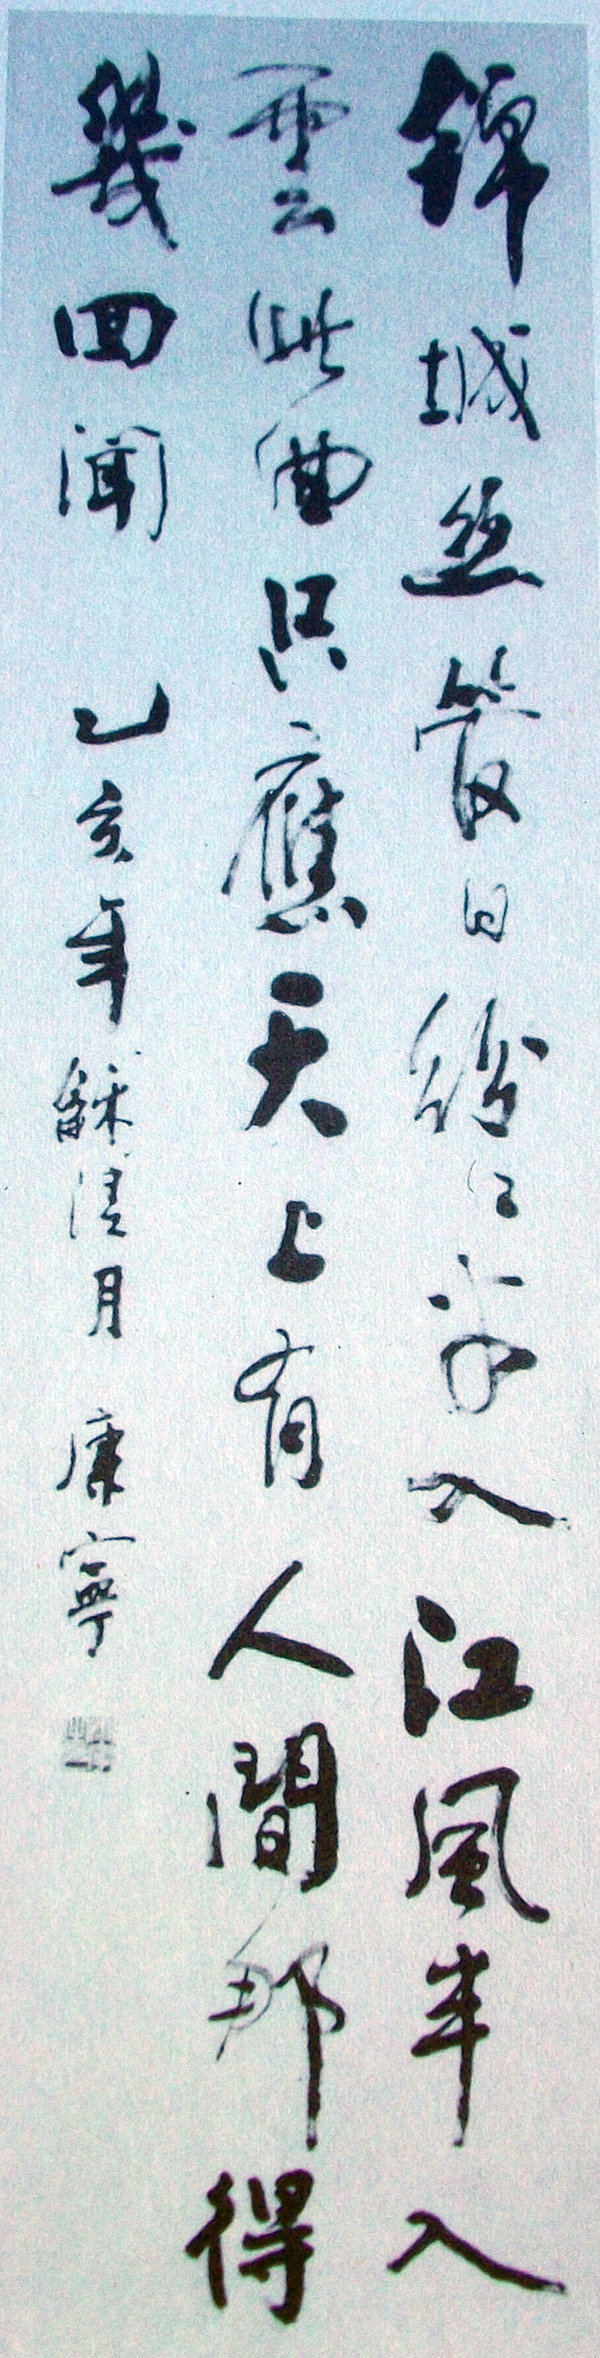 錦城丝管日紛〻半入江風半入
雲此曲只應天上有人間那得
幾回聞 乙亥年龢清月 康寧